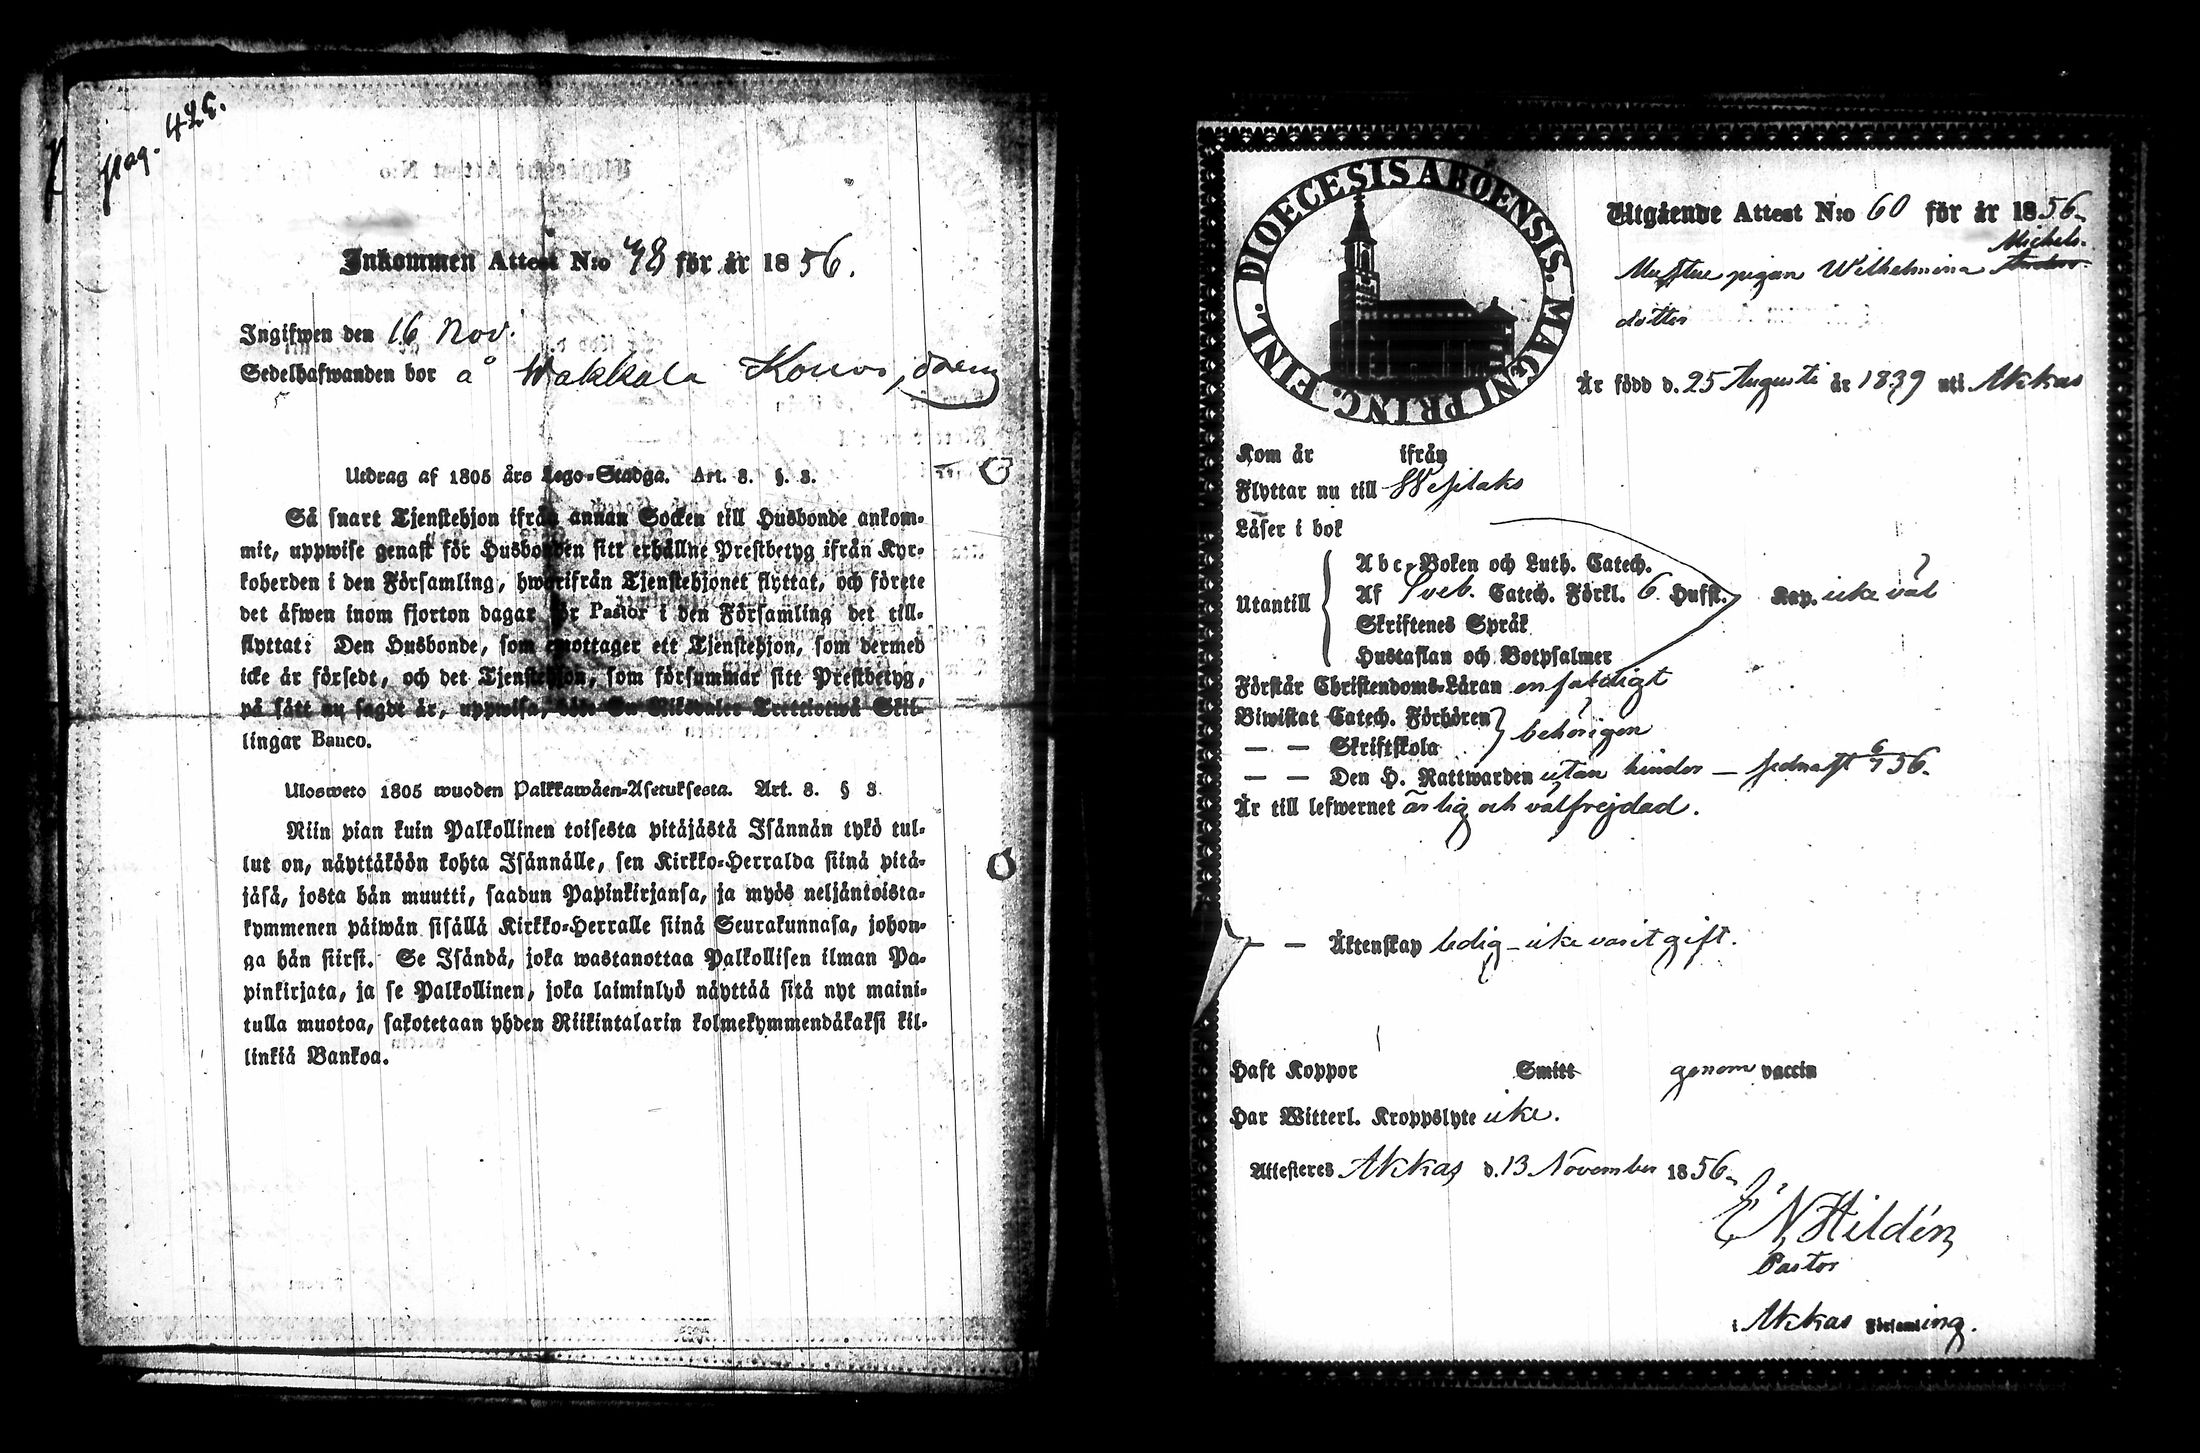 pag. 428.
Inkommen Attest N:o 48 för år 1856.
Ingifwen den 16 Nov.
Sedelhafwanden bor å Wakkala Kouvo,
Utdrag af 1805 års Lego-Stadga. Art. 8. §. 3.
Så snart Tjenstehjon ifrån annan Socken till Husbonde ankom-
mit, uppwise genast för Husbonden sitt erhållne Prestbetyg ifrån Kyr-
koherden i den Församling, hwarifrån Tjenstehjonet flyttat, och förete
det äfwen inom fjorton dagar för Pastor i den Församling det till-
flyttat: Den Husbonde, som emottager ett Tjenstehjon, som dermed
icke är försedt, och det Tjenstehjon, som försummar sitt Prestbetyg,
på sätt nu sagdt är, uppwisa, böte En Riksdaler Trettiotwå Skil-
lingar Banco.
Ulosweto 1805 wuoden Palkkawäen-Asetuksesta. Art. 8. § 3.
Niin pian kuin Palkollinen toisesta pitäjästä Isännän tykö tul-
lut on, näyttäköön kohta Isännälle, sen Kirkko-Herralda siinä pitä-
jäsä, josta hän muutti, saadun Papinkirjansa, ja myös neljäntoista-
kymmenen päiwän sisällä Kirkko-Herralle siinä Seurakunnasa, johon-
ga hän siirsi. Se Isändä, joka wastanottaa Palkollisen ilman Pa-
pinkirjata, ja se Palkollinen, joka laiminlyö näyttää sitä nyt maini-
tulla muotoa, sakotetaan yhden Riikintalarin kolmekymmendäkaksi kil-
linkiä Bankoa.
DIOECESIS ABOENSIS. MAGNI PRINC. FINL.
Utgående Attest N:o 60 för år 1856.
Michels-
pigan Wilhelmina
dotter
Är född d. 25 Augusti år 1839 uti Akkas
Kom år ifrån
Flyttar nu till Wesilaks
Läser i bok
Utantill
Abc-Boken och Luth. Catech.
Af Sveb. Catech. Förkl. 6 Hufst. Kap. icke väl
Skriftenes Språk
Hustaflan och Botpsalmer
Förstår Christendoms-Läran enfaldigt
Biwistat Catech. Förhören
— — Skriftskola behörigen
— — Den H. Nattwarden utan hinder – sednast 6/7 56.
Är till lefwernet ärlig och välfrejdad.
— — Äktenskap ledig – icke varit gift.
Haft Koppor Smitt genom vaccin
Har Witterl. Kroppslyte icke.
Attesteres Akkas d. 13 November 1856.
E N Hildén
Pastor
i Akkas Församling.